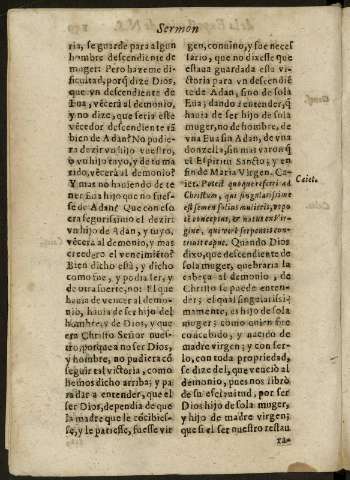 Sermon
ria, se guarde para algun
hombre descendiente de
muger: Pero hazeme di-
ficultad, porq̃ dize Dios,
que vn descendiente de
Eua, vécerá al demonio,
y no dize, que seria este
vécedor descendiente tã
bien de Adan? No pudie-
ra dezir vn hijo vuestro,
o vn hijo tuyo, y de tu ma
rido, vécerá al demonio?
Y mas no hauiendo de te
ner Eua hijo que no fues-
se de Adan? Que con esso
era segurissimo el dezir:
vn hijo de Adan, y tuyo,
vécerá al demonio, y mas
creedero el vencimiéto?
Bien dicho está, y dicho
como fue, y podia ser, y
de otra suerte, no: El que
hauia de vencer al demo-
nio, hauia de ser hijo del
hombre, y de Dios, y que
era Christo Señor nues-
tro, porque a no ser Dios,
y hombre, no pudiera có
seguir tal victoria, como
hemos dicho arriba; y pa
ra dar a entender, que el
ser Dios, dependia de que
la madre que le cócibies-
se, y le pariesse, fuesse vir
gen, conuino, y fue neces
sario, que no dixesse que
estaua guardada esta vi-
ctoria para vn descendié
te de Adan, sino de sola
Eua; dando a entender, q̃
hauia de ser hijo de sola
muger, no de hombre, de
vna Eua sin Adan, de vna
donzella, sin mas varon q̃
el Espiritu Sancto; y en
fin de Maria Virgen. Ca-
iet. Potest quoque referri ad
Christum, qui singularissime
est semen solius mulieris, vtpo
te conceptus, & natus ex Vir-
gine, qui verè serpentis con-
triuit caput. Quando Dios
dixo, que descendiente de
sola muger, quebraria la
cabeça al demonio, de
Christo se puede enten-
der; el qual singularissi-
mamente, es hijo de sola
muger; como quien fue
concebido, y nacido de
madre virgen; y con ser-
lo, con toda propriedad,
se dize del, que venció al
demonio, pues nos libró
de su esclauitud, por ser
Dios hijo de sola muger,
y hijo de madre virgen;
que si el ser nuestro restau
ra-
Caiet.